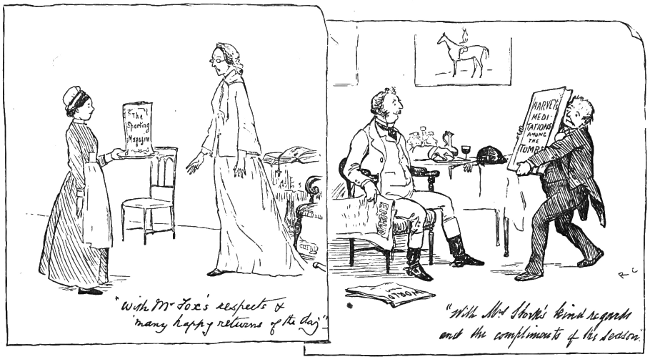 The
Sporting
Magazine
"With Mr Fox's respects &
many happy returns of the day"
HARVEY
MEDI-
TATIONS
AMONG
THE
TOMBS
"With Mrs Stork's kind regards
and the compliments of the season.
R C